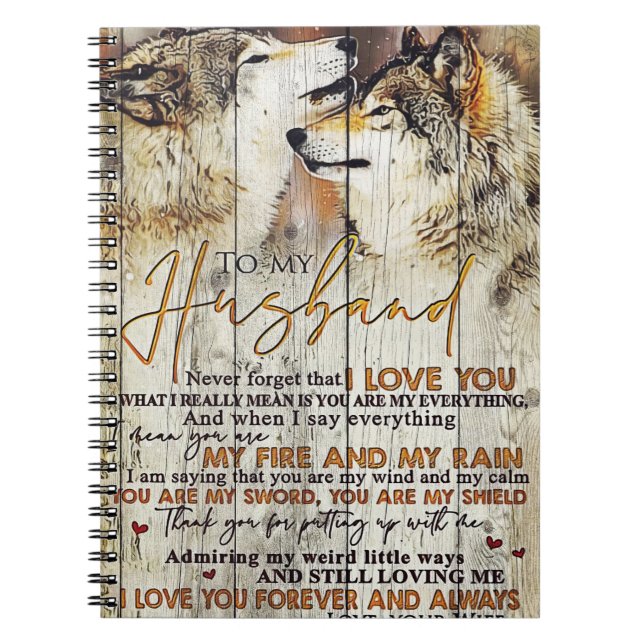 TO MY
Husband
Never forget that I LOVE YOU
WHAT I REALLY MEAN IS YOU ARE MY EVERYTHING,
And when I say everything
mean you are
MY FIRE AND MY RAIN
I am saying that you are my wind and my calm
YOU ARE MY SWORD, YOU ARE MY SHIELD
Thank you for putting up with me
Admiring my weird little ways
AND STILL LOVING ME
I LOVE YOU FOREVER AND ALWAYS
LOVE, YOUR WIFE